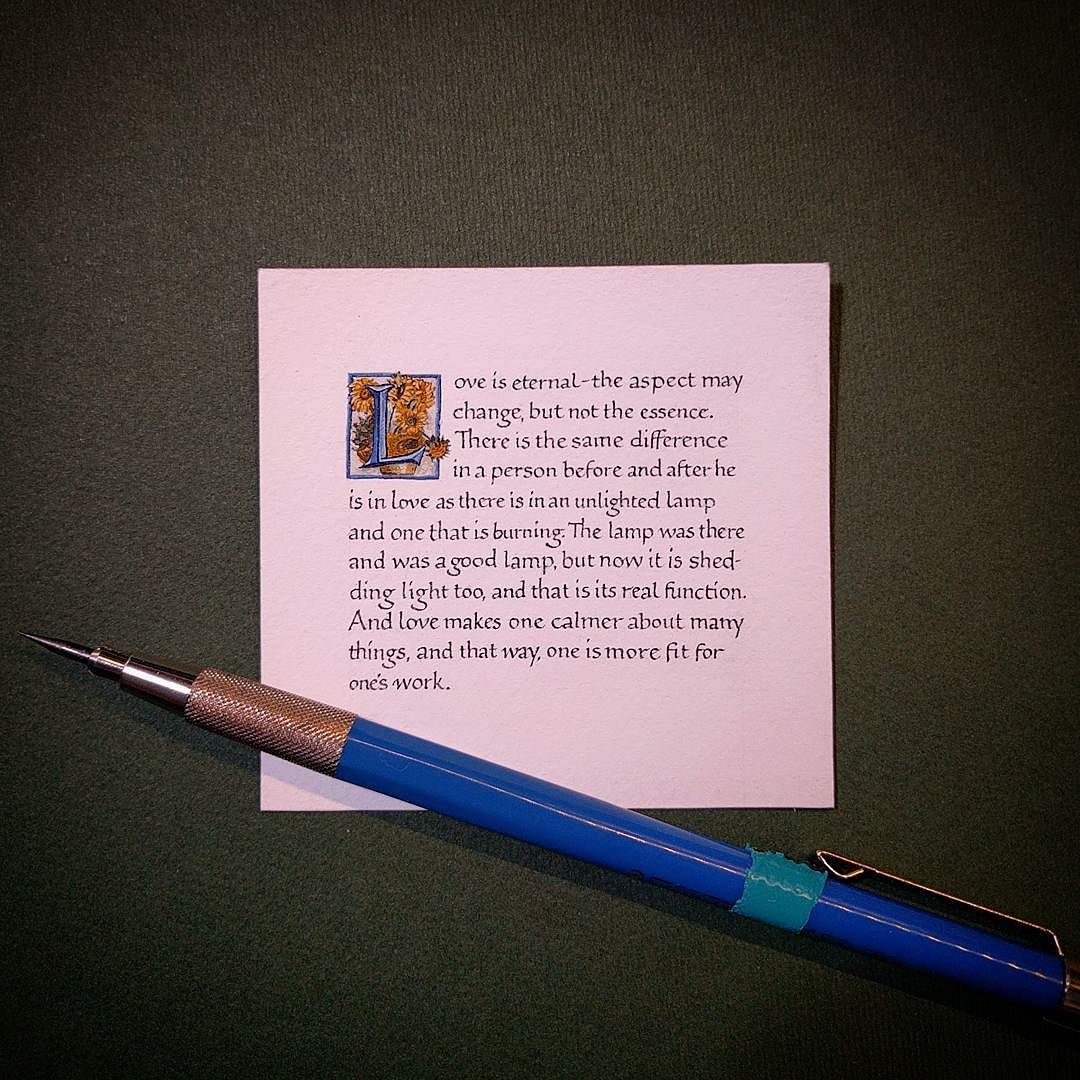 Love is eternal-the aspect may
change, but not the essence.
There is the same difference
in a person before and after he
is in love as there is in an unlighted lamp
and one that is burning. The lamp was there
and was a good lamp, but now it is shed-
ding light too, and that is its real function.
And love makes one calmer about many
things, and that way, one is more fit for
one's work.